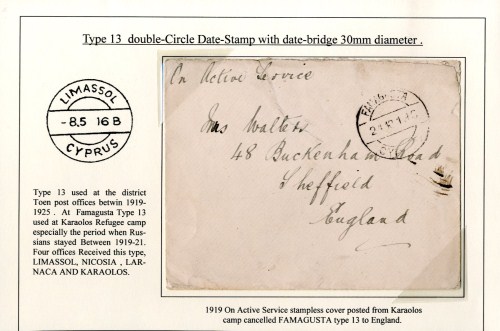 Type 13 double-Circle Date-Stamp with date-bridge 30mm diameter .
LIMASSOL
- 8.5 16 B
CYPRUS
On Active Service
FAMAGUSTA
Mrs Walters
48 Buckenham Road
Sheffield
England
Type 13 used at the district
Toen post offices betwin 1919-
1925 . At Famagusta Type 13
used at Karaolos Refugee camp
especially the period when Rus-
sians stayed Between 1919-21.
Four offices Received this type,
LIMASSOL, NICOSIA , LAR-
NACA AND KARAOLOS.
1919 On Active Service stampless cover posted from Karaolos
camp cancelled FAMAGUSTA type 13 to England.